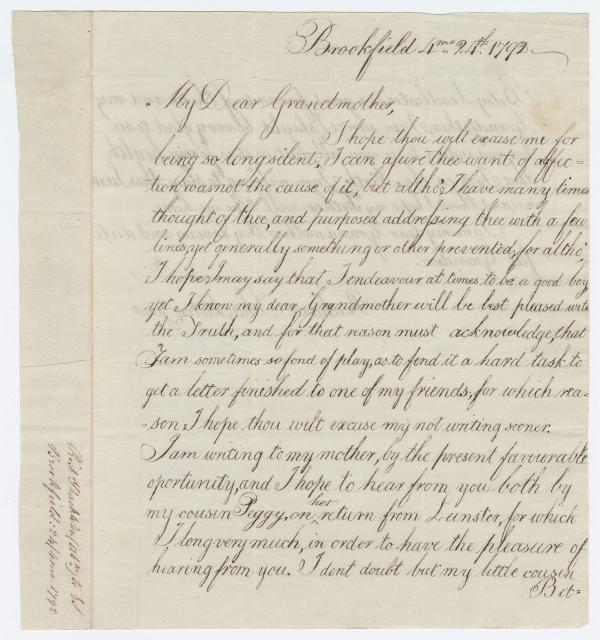 Brookfield 4mo. 24th. 1792
My Dear Grandmother,
I hope thou wilt excuse me for
being so long silent, I can assure thee want of affec=
tion was not the cause of it, but altho', I have many times
thought of thee, and purposed addressing thee with a few
lines, yet generally something or other prevented, for altho',
I hope I may say that I endeavour at times to be a good boy
yet I know my dear Grandmother will be best pleased with
the Truth, and for that reason must acknowledge, that
I am sometimes so fond of play, as to find it a hard task to
get a letter finished to one of my friends, for which rea=
=son I hope thou wilt excuse my not writing sooner.
I am writing to my mother, by the present favourable
oportunity, and I hope to hear from you both by
my cousin Peggy, on her return from Lunster, for which
I long very much, in order to have the pleasure of
hearing from you. I dont doubt but my little cousin
Bet=
Brookfield: 24/4mo. 1792